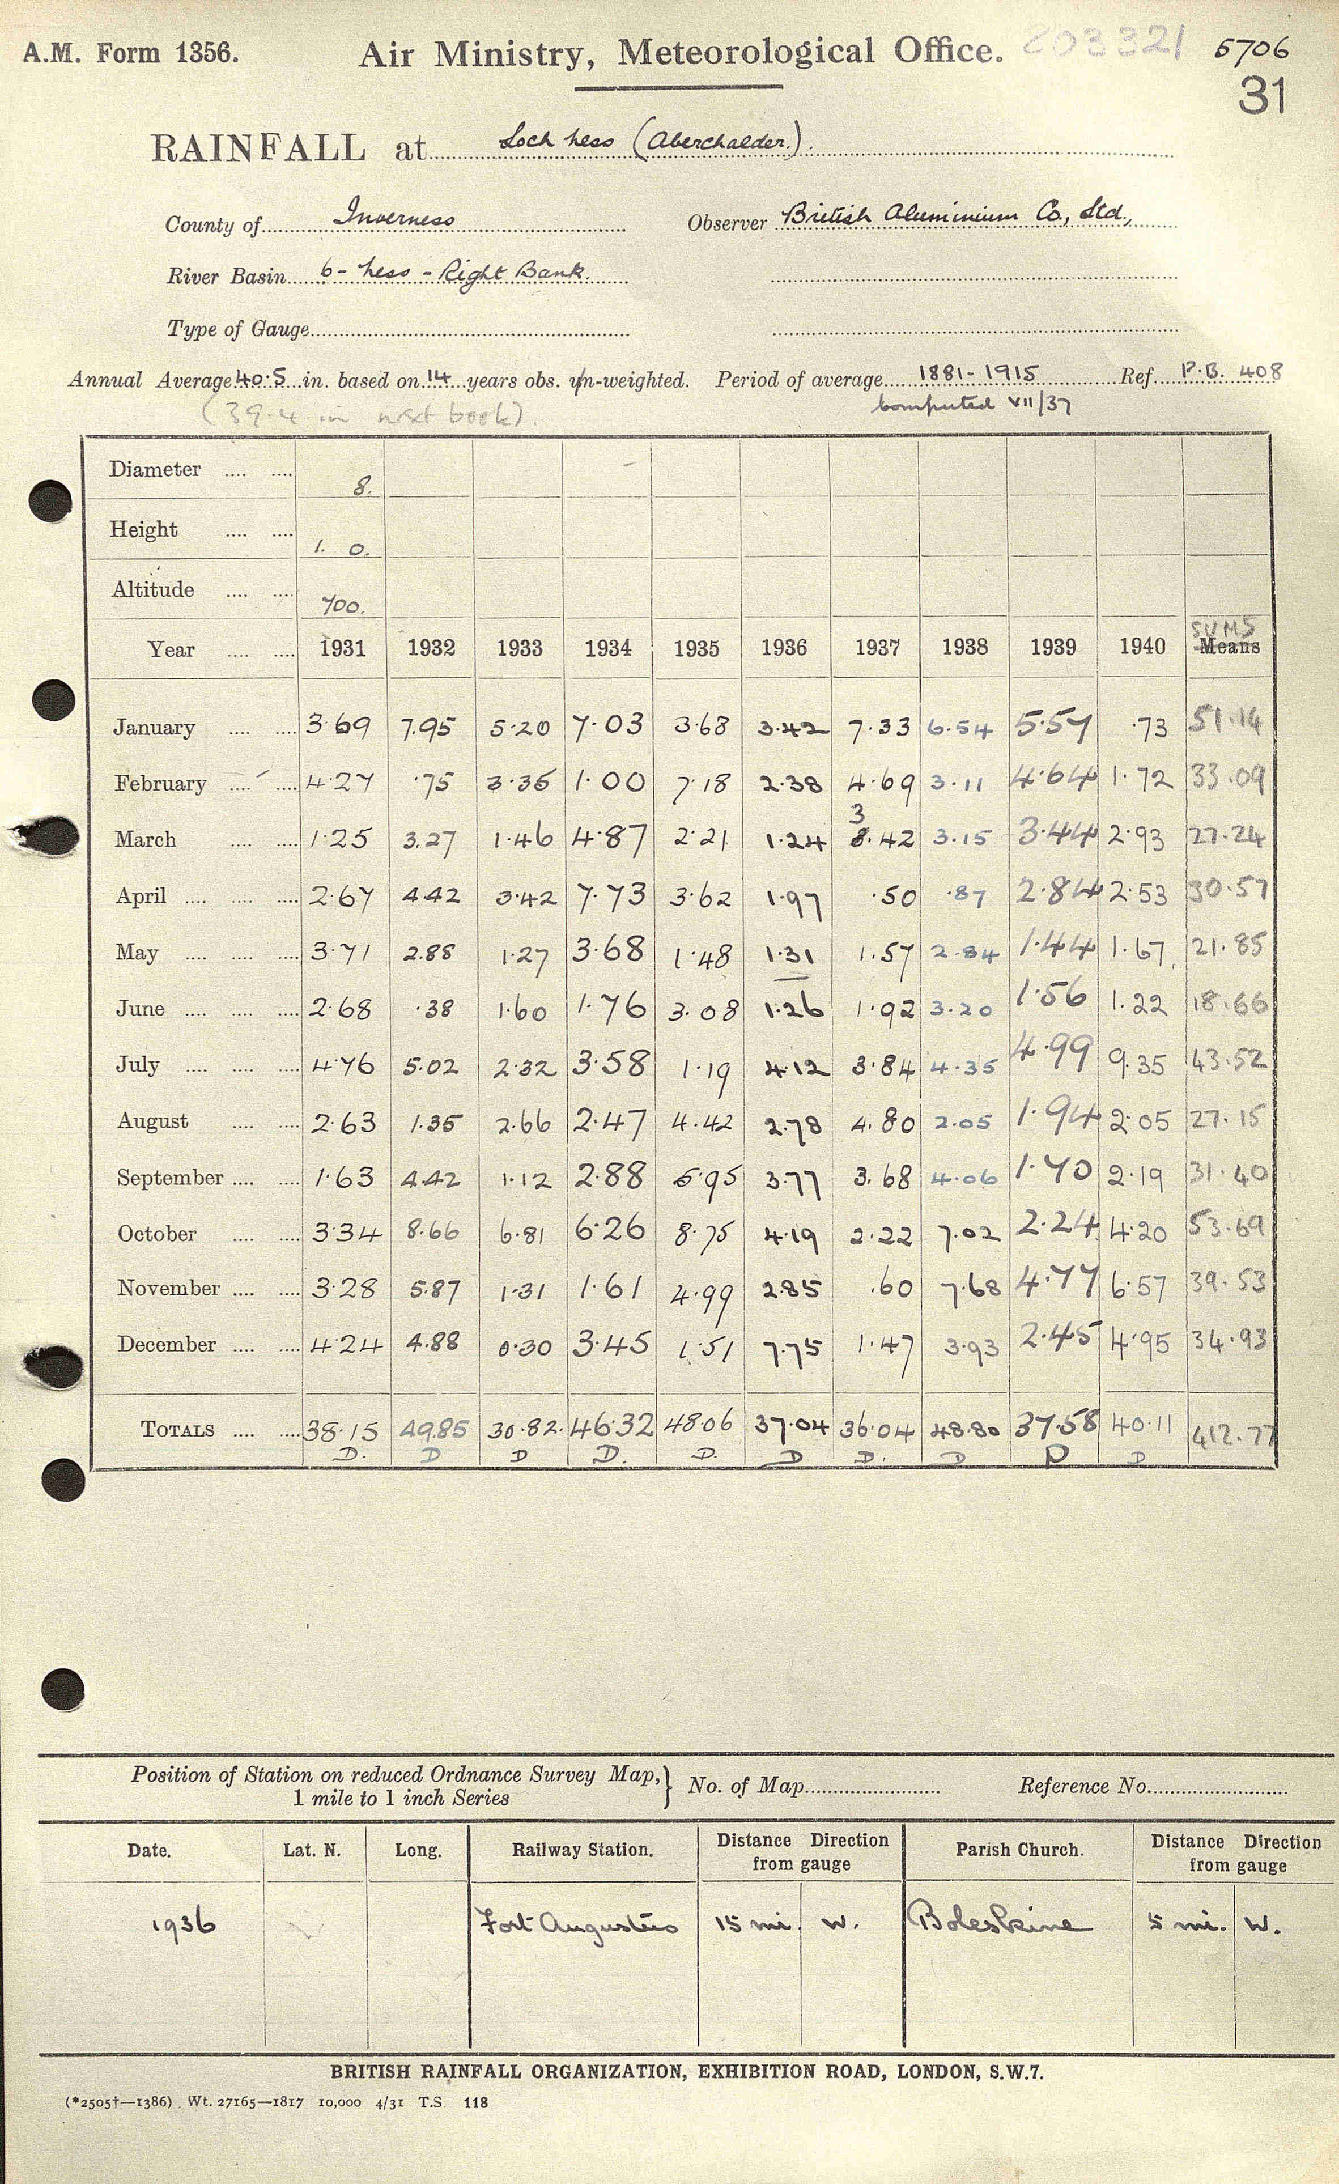 A.M. Form 1356. Air Ministry, Meteorological Office. C03321 5706
31
RAINFALL at Loch Ness (Aberchalder.)
County of Inverness Observer British Aluminium Co, Ltd.,
River Basin 6- Ness - Right Bank.
Type of Gauge
Annual Average 40.5 in. based on 14 years obs. un-weighted. Period of average 1881-1915 Ref. P.B. 408
(39.4 in next book). Computed VII/37
Diameter 8.
Height 1. 0.
Altitude 700.
SUMS
Year 1931 1932 1933 1934 1935 1936 1937 1938 1939 1940 Means
January 3.69 7.95 5.20 7.03 3.68 3.42 7.33 6.54 5.57 .73 51.14
February 4.27 .75 3.35 1.00 7.18 2.38 4.69 3.11 4.64 1.72 33.09
3
March 1.25 3.27 1.46 4.87 2.21 1.24 8.42 3.15 3.44 2.93 27.24
April 2.67 4.42 3.42 7.73 3.62 1.97 .50 .87 2.84 2.53 30.57
May 3.71 2.88 1.27 3.68 1.48 1.31 1.57 2.84 1.44 1.67 21.85
June 2.68 .38 1.60 1.76 3.08 1.26 1.92 3.20 1.56 1.22 18.66
July 4.76 5.02 2.32 3.58 1.19 4.12 3.84 4.35 4.99 9.35 43.52
August 2.63 1.35 2.66 2.47 4.42 2.78 4.80 2.05 1.94 2.05 27.15
September 1.63 4.42 1.12 2.88 5.95 3.77 3.68 4.06 1.70 2.19 31.40
October 3.34 8.66 6.81 6.26 8.75 4.19 2.22 7.02 2.24 4.20 53.69
November 3.28 5.87 1.31 1.61 4.99 2.85 .60 7.68 4.77 6.57 39.53
December 4.24 4.88 0.30 3.45 1.51 7.75 1.47 3.93 2.45 4.95 34.93
TOTALS 38.15 49.85 30.82 46.32 48.06 37.04 36.04 48.80 37.58 40.11 412.77
D. D D D. D. D D. D D D
Position of Station on reduced Ordnance Survey Map, } No. of Map Reference No.
1 mile to 1 inch Series
Date. Lat. N. Long. Railway Station. Distance Direction from gauge Parish Church. Distance Direction from gauge
1936 Fort Augustus 15 mi. W. Boleskine 5 mi. W.
BRITISH RAINFALL ORGANIZATION, EXHIBITION ROAD, LONDON, S.W.7.
(*2505†—1386) Wt. 27165—1817 10,000 4/31 T.S. 118